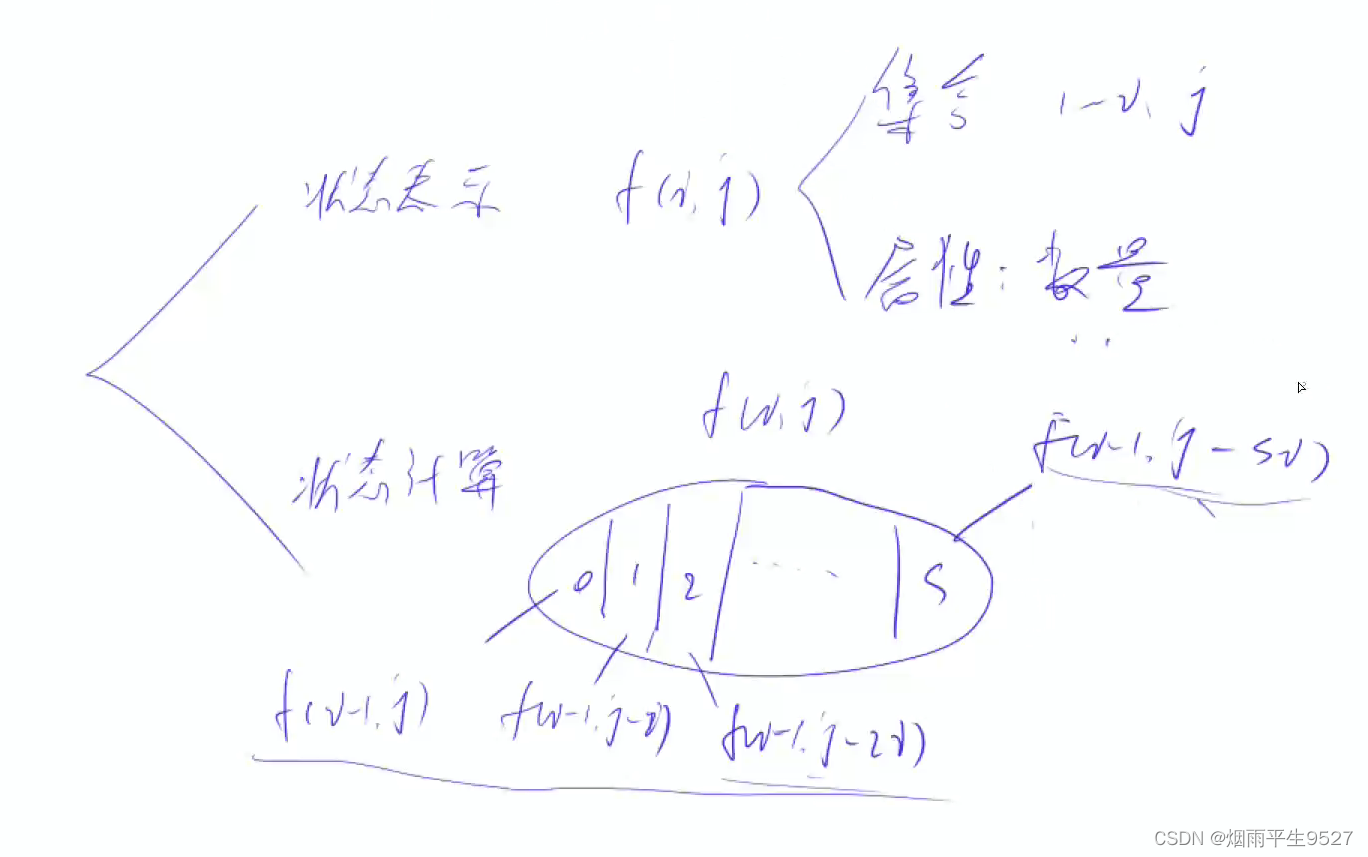 集合 1-i, j
状态表示 f(i, j)
属性: 数量
f(i, j)
f(i-1, j-si)
状态计算
0 1 2 ...... s
f(i-1, j) f(i-1, j-i) f(i-1, j-2i)
CSDN @烟雨平生9527